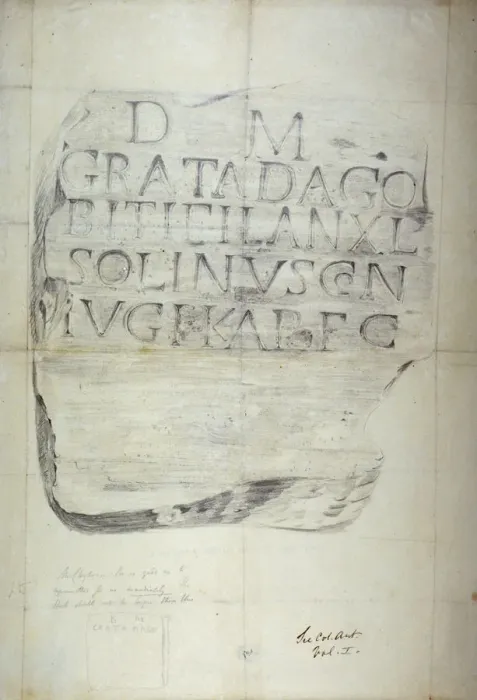 D M
GRATA DAGO
BITI FIL AN XL
SOLINVS CON
IVGI KAR F C
D M
GRATA DAGO
See Col. Ant.
Vol. I.